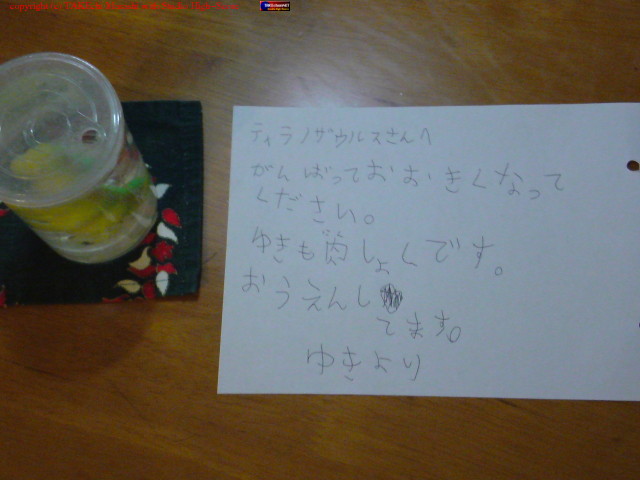 ティラノザウルスさんへ
がんばっておおきくなって
ください。
ゆきも肉しょくです。
おうえんし
てます。
ゆきより